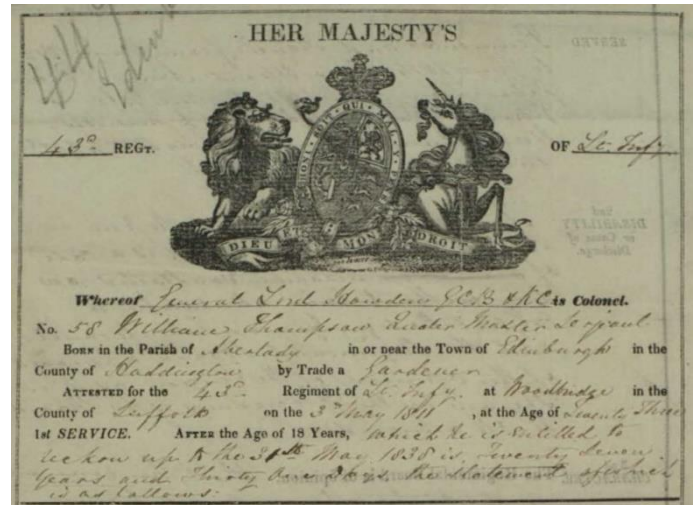 447
Edinb
HER MAJESTY'S
43d REGT.
OF Lt. Infy
HONI SOIT QUI MAL Y PENSE
DIEU ET MON DROIT
Whereof General Lord Howden GCB & KC is Colonel.
No. 58 William Thompson Quater Master Serjeant
BORN in the Parish of Aberlady in or near the Town of Edinburgh in the
County of Haddington by Trade a Gardener
ATTESTED for the 43d Regiment of Lt. Infy at Woodbridge in the
County of Suffolk on the 3d May 1811, at the Age of Twenty Three
1st SERVICE. AFTER the Age of 18 Years, which he is Entitled to
reckon up to the 31st May 1838 is Twenty Seven
Years and Thirty One Days the statement of which
is as follows:
SERVED
and
DISABILITY
or Cause of
Discharge.